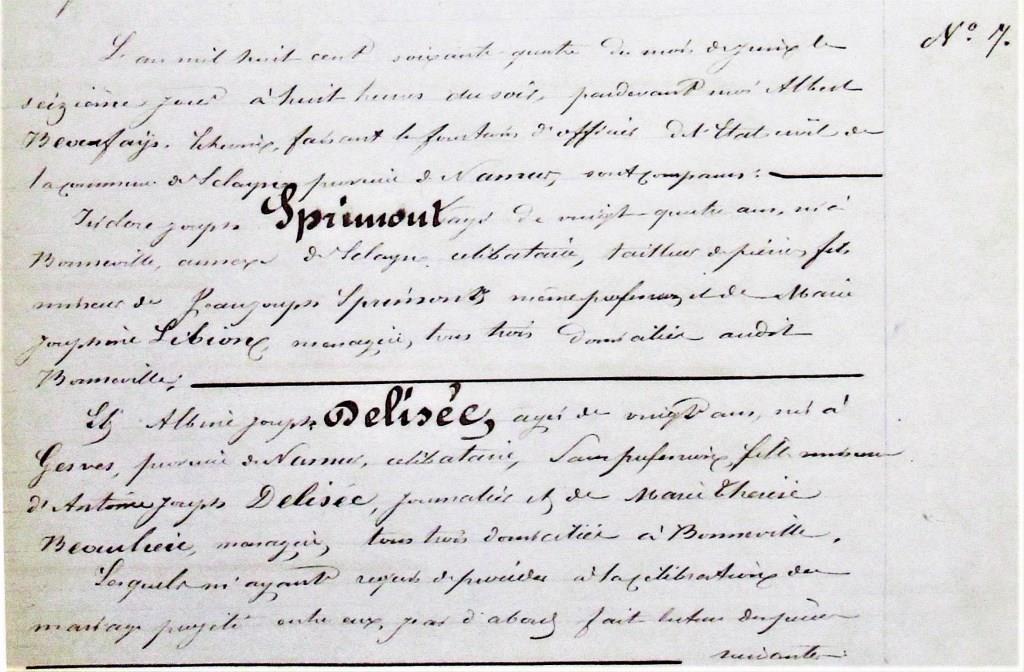 N° 7.
L'an mil huit cent soixante-quatre du mois de juin le
seizième jour à huit heures du soir, pardevant moi Albert
Beaufays, Echevin, faisant les fonctions d'officier de l'Etat civil de
la commune de Sclayn, province de Namur, sont comparus:
Isidore Joseph Sprimont, agé de vingt-quatre ans, né à
Bonneville, annexe de Sclayn, célibataire, tailleur de pierres, fils
mineur de Jean Joseph Sprimont, même profession, et de Marie
Josephine Libion, menagère, tous trois domiciliés audit
Bonneville;
Et Albine Joseph Delisée, agée de vingt ans, née à
Gesves, province de Namur, célibataire, sans profession, fille mineure
d'Antoine Joseph Delisée, journalier et de Marie Thérèse
Beaulieu, menagère, tous trois domiciliés à Bonneville.
Lesquels m'ayant requis de procéder à la célébration du
mariage projeté entre eux, j'ai d'abord fait lecture des pièces
suivantes: